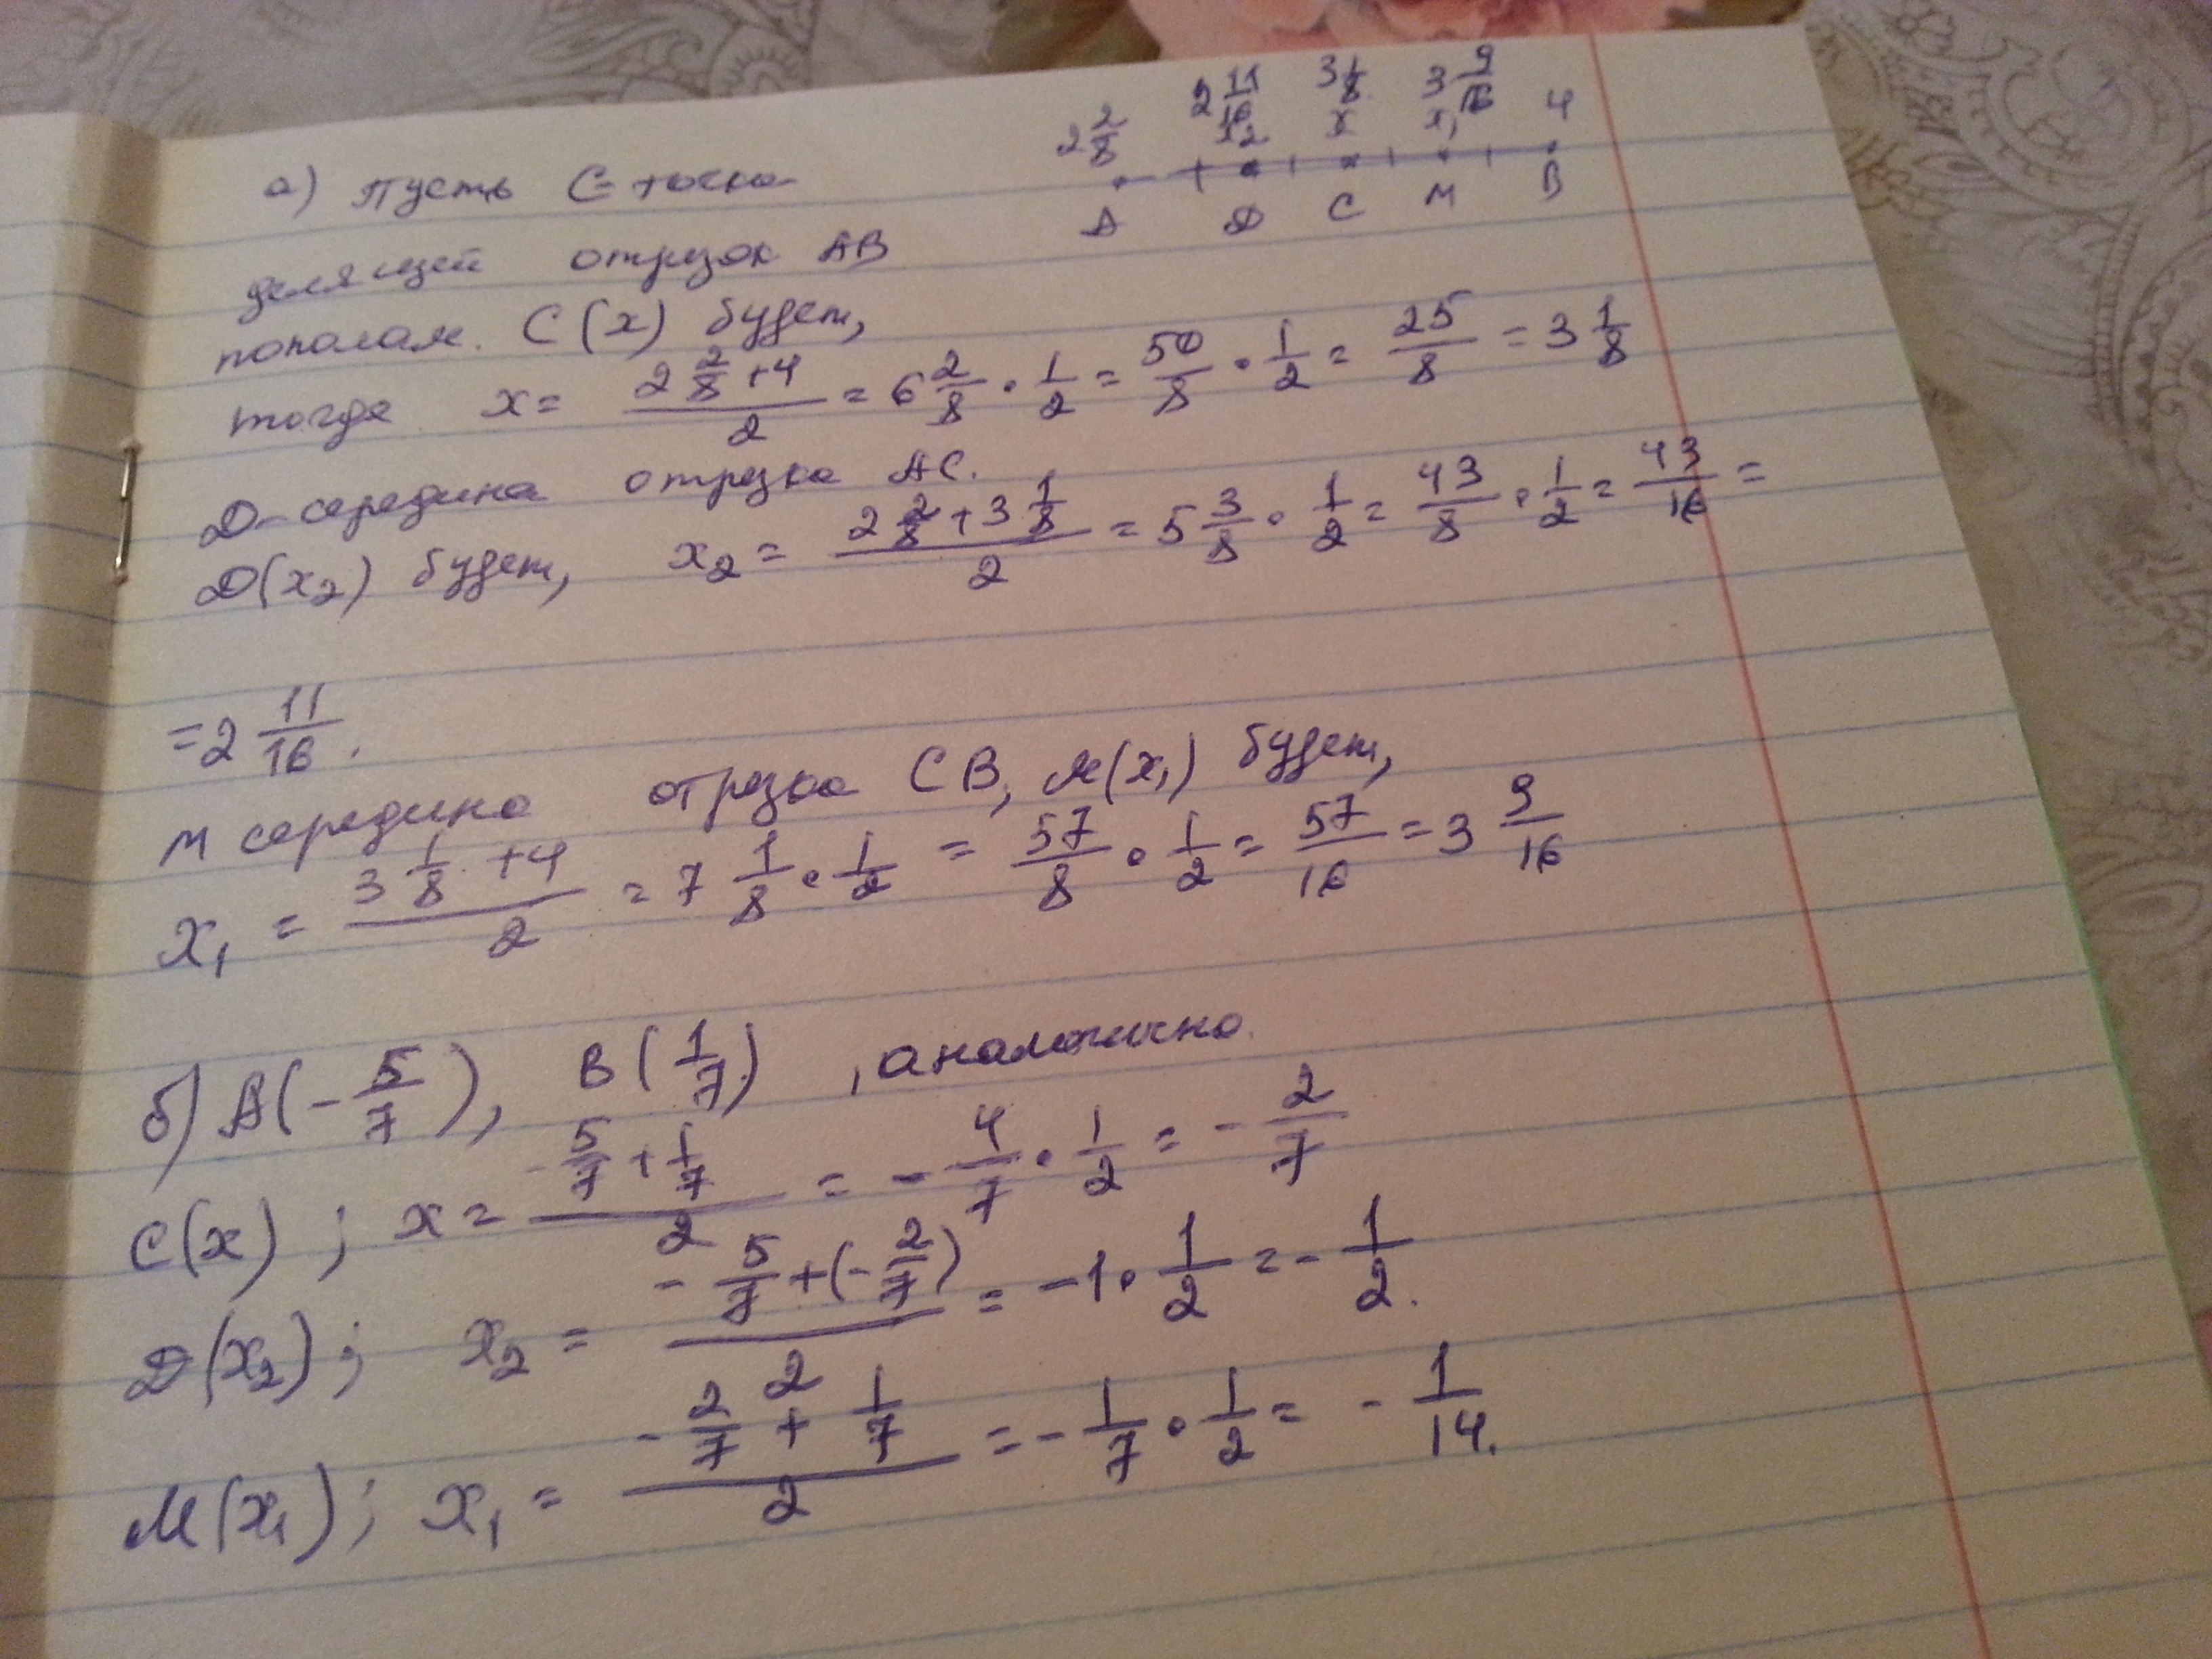 2 2/8 2 11/16 3 1/8 3 9/16 4
x2 x x₁
А Д С М В
а) Пусть С - точка
делящей отрезок АВ
пополам. С(x) будет,
тогда x = (2 2/8 + 4)/2 = 6 2/8 · 1/2 = 50/8 · 1/2 = 25/8 = 3 1/8
Д - середина отрезка АС.
Д(x₂) будет, x₂ = (2 2/8 + 3 1/8)/2 = 5 3/8 · 1/2 = 43/8 · 1/2 = 43/16 =
= 2 11/16.
М середина отрезка СВ, М(x₁) будет,
x₁ = (3 1/8 + 4)/2 = 7 1/8 · 1/2 = 57/8 · 1/2 = 57/16 = 3 9/16
б) А(-5/7), В(1/7), аналогично.
С(x); x = (-5/7 + 1/7)/2 = -4/7 · 1/2 = -2/7
Д(x₂); x₂ = (-5/7 + (-2/7))/2 = -1 · 1/2 = -1/2.
М(x₁); x₁ = (-2/7 + 1/7)/2 = -1/7 · 1/2 = -1/14.